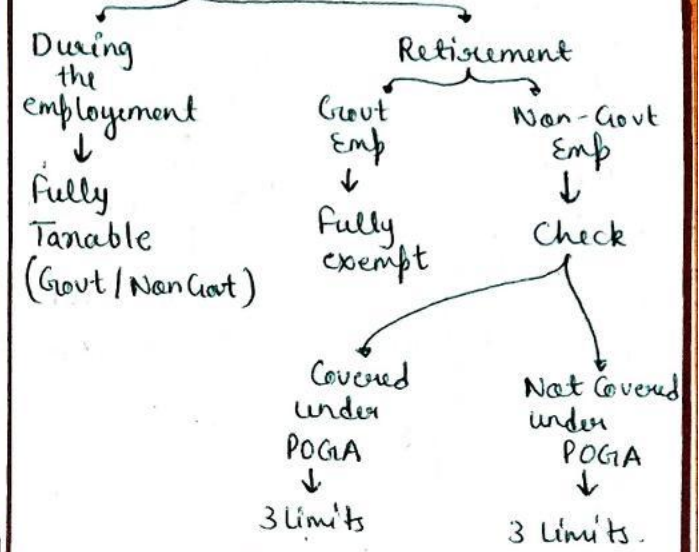 During
the
employement
Fully
Tanable
(Govt / Non Govt)
Retirement
Govt
Emp
Fully
exempt
Non-Govt
Emp
Check
Covered
under
POGA
3 Limits
Not Covered
under
POGA
3 Limits.